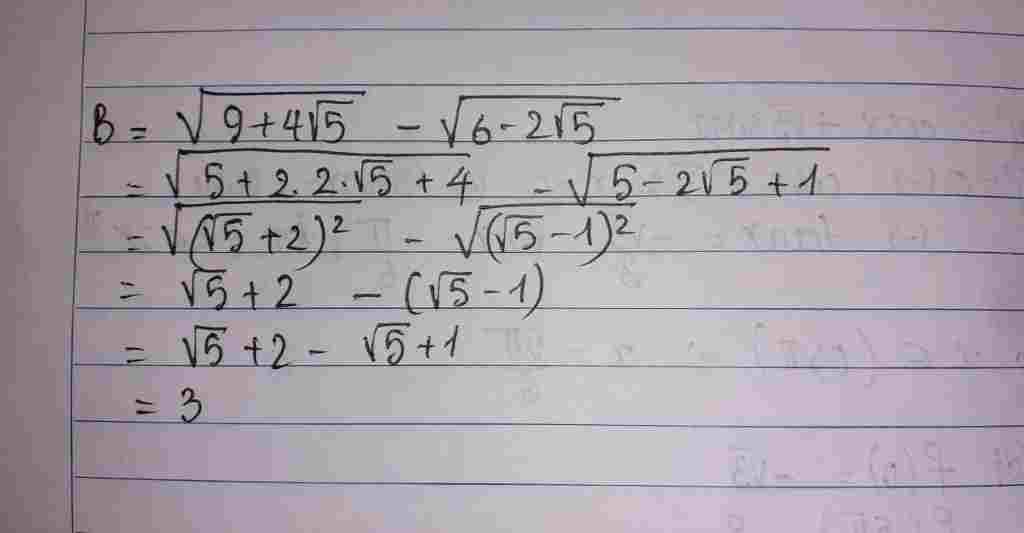 B = √(9+4√5) - √(6-2√5)
= √(5+2.2.√5+4) - √(5-2√5+1)
= √((√5+2)²) - √((√5-1)²)
= √5+2 - (√5-1)
= √5+2 - √5+1
= 3